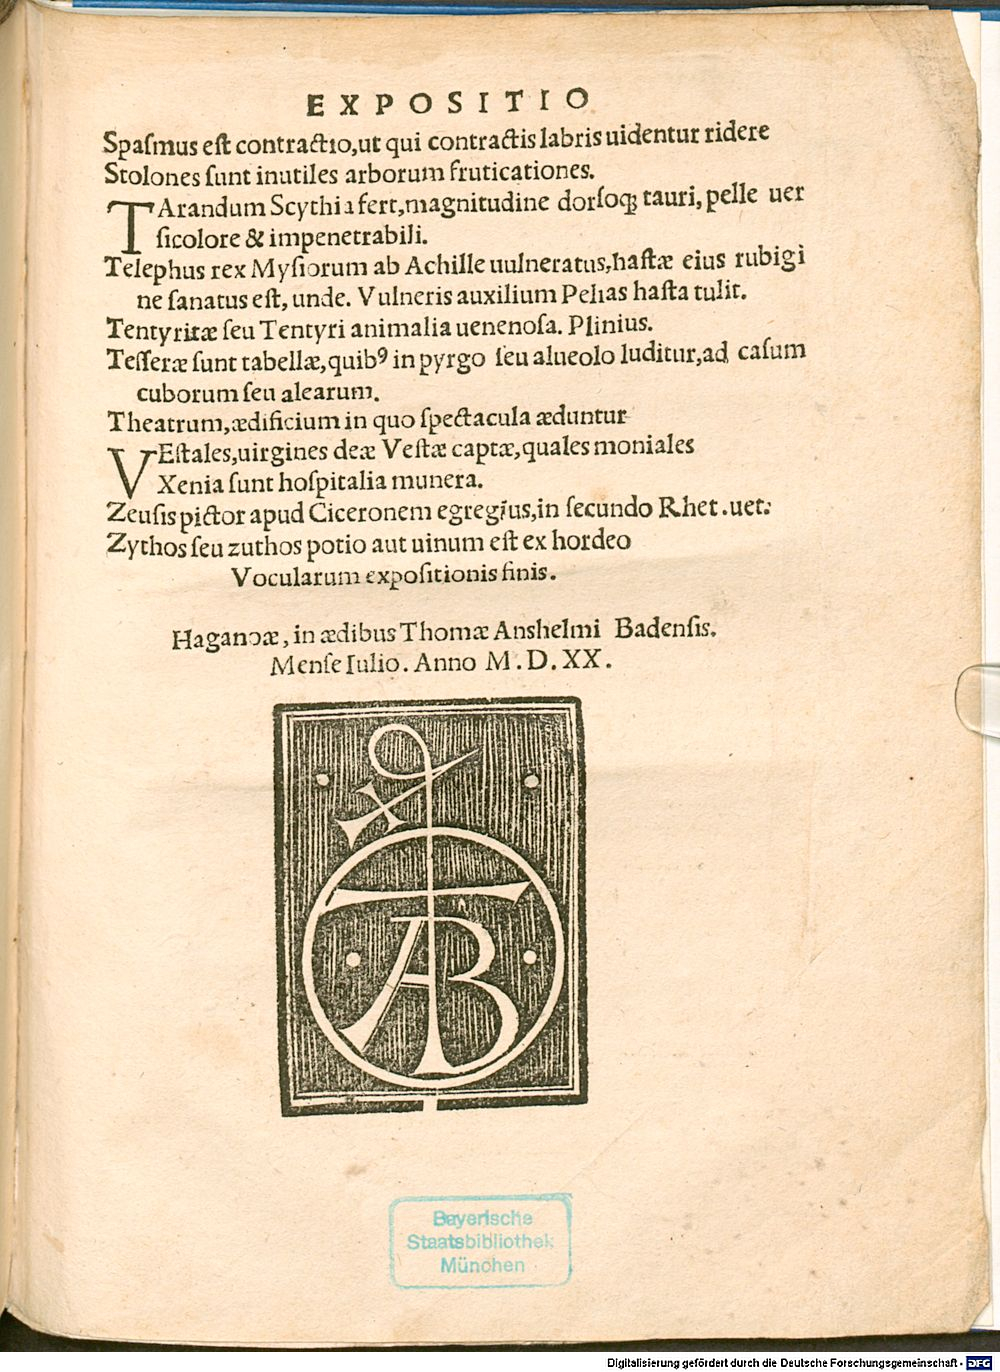 EXPOSITIO
Spaſmus eſt contractio,ut qui contractis labris uidentur ridere
Stolones ſunt inutiles arborum fruticationes.
TArandum Scythia fert,magnitudine dorſoqꝫ tauri,pelle uer
ſicolore & impenetrabili.
Telephus rex Myſiorum ab Achille uulneratus,haſtæ eius rubigi
ne ſanatus eſt, unde. Vulneris auxilium Pelias haſta tulit.
Tentyritæ ſeu Tentyri animalia uenenoſa. Plinius.
Teſſeræ ſunt tabellæ,quibꝰ in pyrgo ſeu alueolo luditur,ad caſum
cuborum ſeu alearum.
Theatrum,ædificium in quo ſpectacula æduntur
VEſtales,uirgines deæ Veſtæ captæ,quales moniales
Xenia ſunt hoſpitalia munera.
Zeuſis pictor apud Ciceronem egregius,in ſecundo Rhet.uet:
Zythos ſeu zuthos potio aut uinum eſt ex hordeo
Vocularum expoſitionis finis.
Haganoæ, in ædibus Thomæ Anshelmi Badenſis.
Menſe Iulio. Anno M.D.XX.
TAB
Bayerische
Staatsbibliothek
München
Digitalisierung gefördert durch die Deutsche Forschungsgemeinschaft - DFG